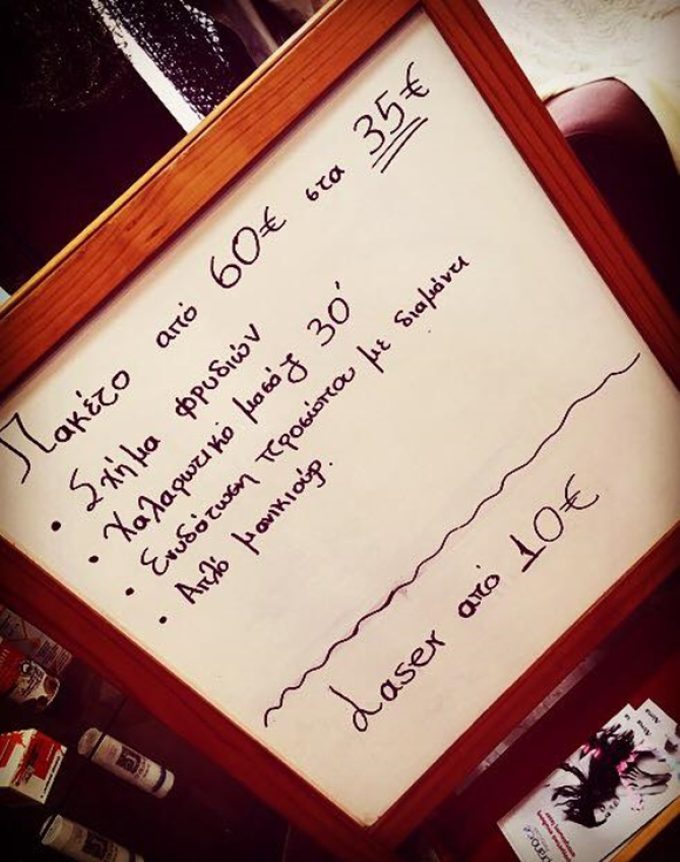 Πακέτο από 60€ στα 35€
• Σχήμα φρυδιών
• Χαλαρωτικό μασάζ 30'
• Ενυδάτωση προσώπου με διαμάντι
• Απλό μανικιούρ.
Laser από 10€